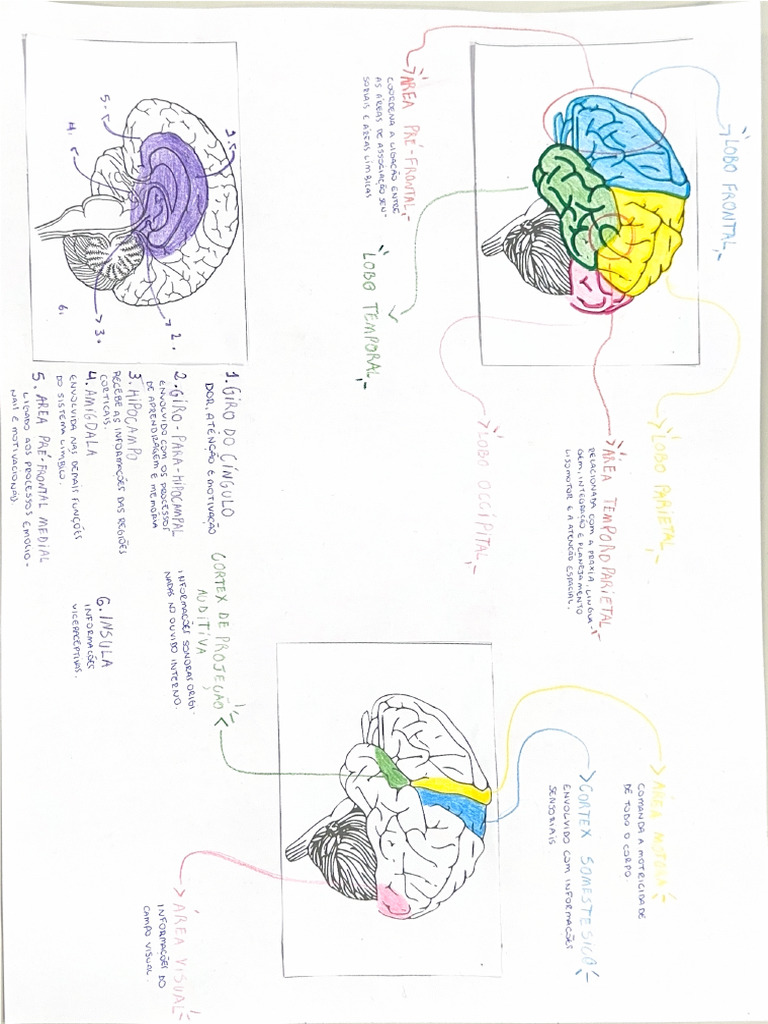 LOBO FRONTAL
LOBO PARIETAL
ÁREA TEMPOROPARIETAL
RELACIONADA COM A PRAXIA, LINGUA-
GEM, INTEGRAÇÃO E PLANEJAMENTO
VISOMOTOR E A ATENÇÃO ESPACIAL.
LOBO OCCÍPITAL
ÁREA PRÉ-FRONTAL
COORDENA A LIGAÇÃO ENTRE
AS ÁREAS DE ASSOCIAÇÃO SEN-
SORIAIS E ÁREAS LÍMBICAS
LOBO TEMPORAL
ÁREA MOTORA
COMANDA A MOTRICIDADE
DE TODO O CORPO.
CORTEX SOMESTESICO
ENVOLVIDO COM INFORMAÇÕES
SENSORIAIS
CORTEX DE PROJEÇÃO
AUDITIVA
INFORMAÇÕES SONORAS ORIGI-
NADAS NO OUVIDO INTERNO.
ÁREA VISUAL
INFORMAÇÕES DO
CAMPO VISUAL.
5.
4.
2.
3.
6.
1. GIRO DO CÍNGULO
DOR, ATENÇÃO E MOTIVAÇÃO
2. GIRO-PARA-HIPOCAMPAL
ENVOLVIDO COM OS PROCESSOS
DE APRENDIZAGEM E MEMÓRIA
3. HIPOCAMPO
RECEBE AS INFORMAÇÕES DAS REGIÕES
CORTICAIS.
4. AMÍGDALA
ENVOLVIDA NAS DEMAIS FUNÇÕES
DO SISTEMA LÍMBICO.
5. ÁREA PRÉ-FRONTAL MEDIAL
LIGADO AOS PROCESSOS EMOCIO-
NAIS E MOTIVACIONAIS.
6. INSULA
INFORMAÇÕES
VICERCEPTIVAS.